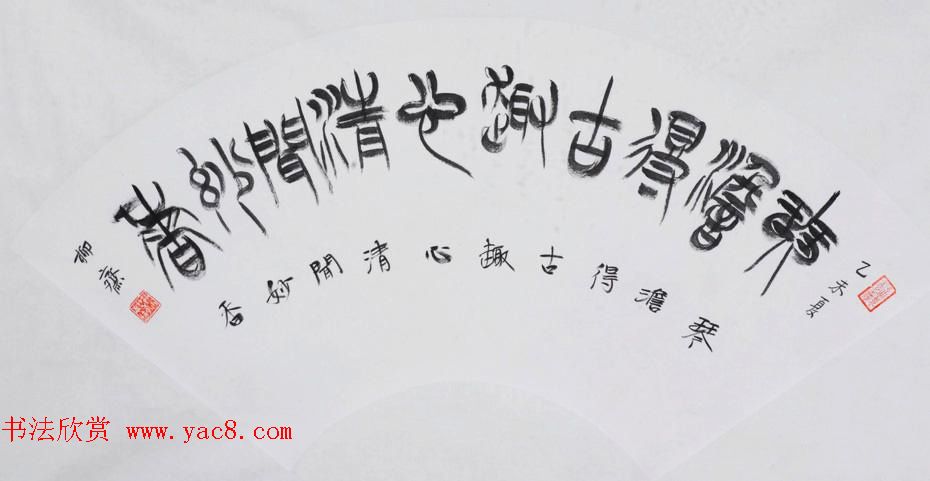 乙未夏
琴澹得古趣心清聞妙香
琴澹得古趣心清聞妙香
齋
书法欣赏 www.yac8.com